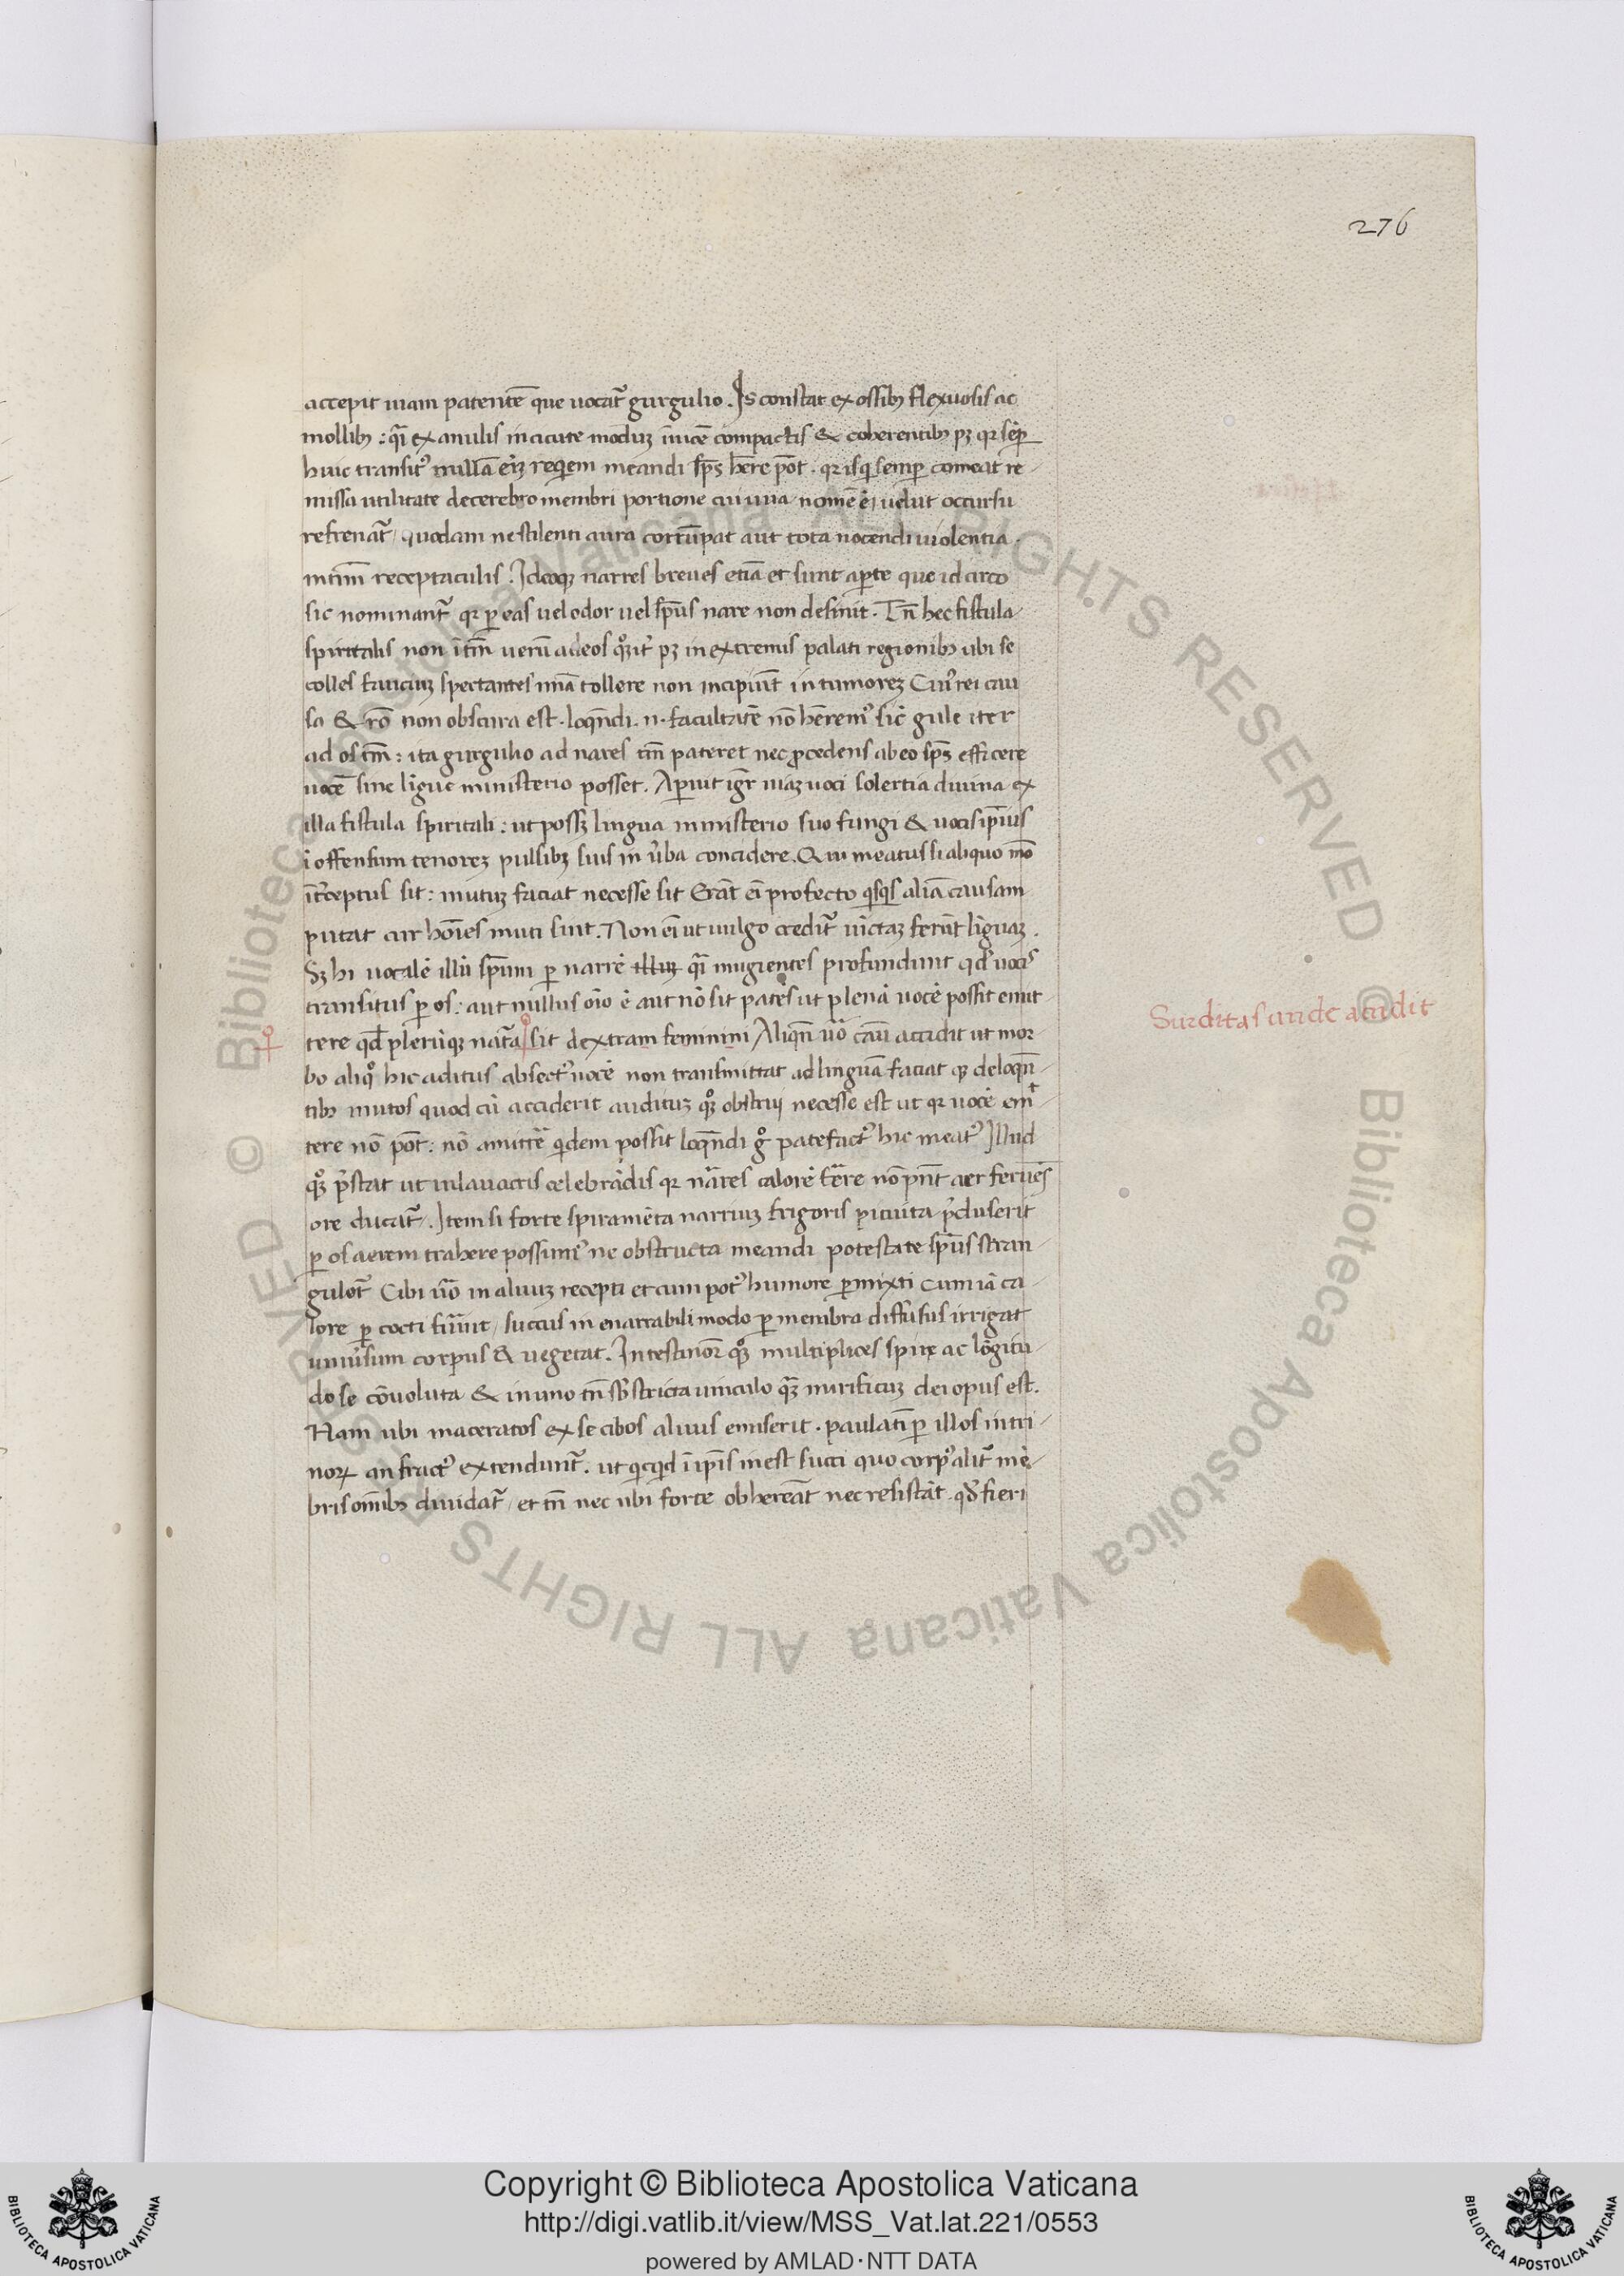 276
accepit uiam patentē que uocat᷑ gurgulio. Is constat ex ossibꝫ flexuosis ac
mollibꝫ : qͣi ex anulis in cicute modūꝫ īuicē compactis & coherentibꝫ pꝫ qꝛ sēp̲
huic transitꝰ nullā eīꝫ reqͥem meandi sp̄s hr̄e pōt . qꝛ isqͥ semp̲ comeat re-
missa utilitate decerebro membri portione cui uua nomē ē, uelut occursu
refrenat᷑, quodam nestilenti aura corrūpat aut tota nocendi uiolentia .
intim̄ receptaculis . Ideoqꝫ narres breues etiā et sunt ap̲te que id circo
sic nominant᷑ qꝛ p̲ eas uel odor uel sp̄us nare non desinit . Tn̄ hec fistula
spiritalis non ī tm̄ uerū adeos qͦꝫ it᷑ pꝫ in extremis palati regionibꝫ ubi se
colles fauciuꝫ spectantes unā tollere non incipiūt in tumoreꝫ Cuiꝰ rei cau
sa & rō non obscura est . loqn̄di . n . facultatē nō hēremꝰ sic̄ gule iter
ad os tm̄ : ita gurgulio ad nares tm̄ pateret nec procedens ab eo sp̄s efficere
uocē sine līgue ministerio posset . Ap̲uit igr̄ uiaꝫ uoci solertia diuina ex
illa fistula spiritali : ut possꝫ lingua ministerio suo fungi & uocis ip̄ius
ī offensum tenoreꝫ pulsibꝫ suis in u̓ba concidere . Qui meatus si aliquo mō
īt᷑ceptus sit : mutuꝫ faciat necesse sit Erāt ēi profecto qͥsqͥs aliā causam
putat cur hōies muti sint . Non ēi ut uulgo credit᷑ uīctaꝫ ferūt līguaꝫ .
Sꝫ hi uocalē illū sp̄um p̲ narrē qͣi mugientes profundunt qd̓ uocis
transitus p̲ os : aut nullus oīo ē aut nō sit patēs ut plenā uocē possit emit-
tere qd̓ plerūqꝫ nat᷑a sit dextram feminini Aliqn̄ uō cāu accidit ut mor-
Surditas unde accidit
bo aliqͦ hic aditus absectꝰ uocē non transmittat ad linguā faciat qꝫ deloqn̄-
tibꝫ mutos quod cū acciderit audituꝫ qͦꝫ obstruj necesse est ut qꝛ uocē emͭ-
tere nō pōt : nō amittē qͥdem possit loqn̄di gͦ patefactꝰ hic meatꝰ Illud
qͦꝫ p̄stat ut inlauacris celebrādis qꝛ nāres calorē fēre nō pn̄t aer feruēs
ore ducat᷑ . Item si forte spiramēta narriuꝫ frigoris pituita p̄cluserit
p̲ os aerem trahere possimꝰ ne obstructa meandi potestate sp̄us stran-
gulet᷑ Cibi uō in aluuꝫ recepti et cum potꝰ humore p̲mixti cum iā ca-
lore p̲ cocti fuerīnt, succus in enarrabili modo p̲ membra diffusus irrigat
uniu̓sum corpus & uegetat . Intestinoꝝ qͦꝫ multiplices spire ac lōgitu-
do se cōuoluta & in uno tn̄ sb̄stricta uinculo qͣꝫ mirificuꝫ dei opus est .
Nam ubi maceratos ex se cibos aluus emiserit . paulatī p̲ illos intri-
noꝝ anfractꝰ extendunt᷑ . ut qͥcqͥd ī ip̄is inest succi quo corpꝰ alit᷑ mē-
bris om̄ibꝫ diuidat᷑, et tn̄ nec ubi forte obhereāt nec resistāt . qd̓ fieri
Copyright © Biblioteca Apostolica Vaticana
http://digi.vatlib.it/view/MSS_Vat.lat.221/0553
powered by AMLAD·NTT DATA